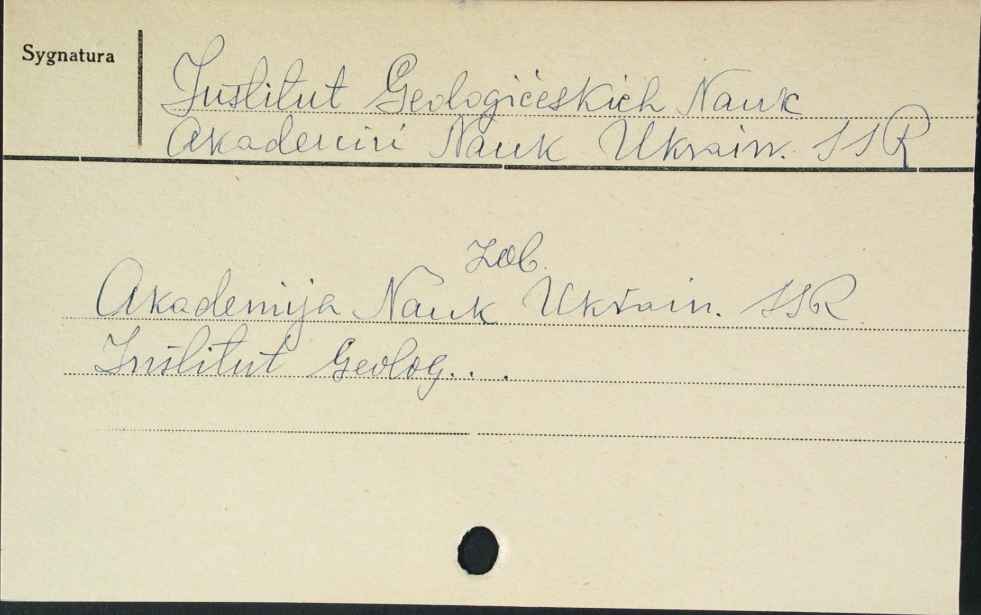 Sygnatura
Institut Geologičeskich Nauk
Akademii Nauk Ukrain. SSR
zob.
Akademija Nauk Ukrain. SSR
Institut Geolog...